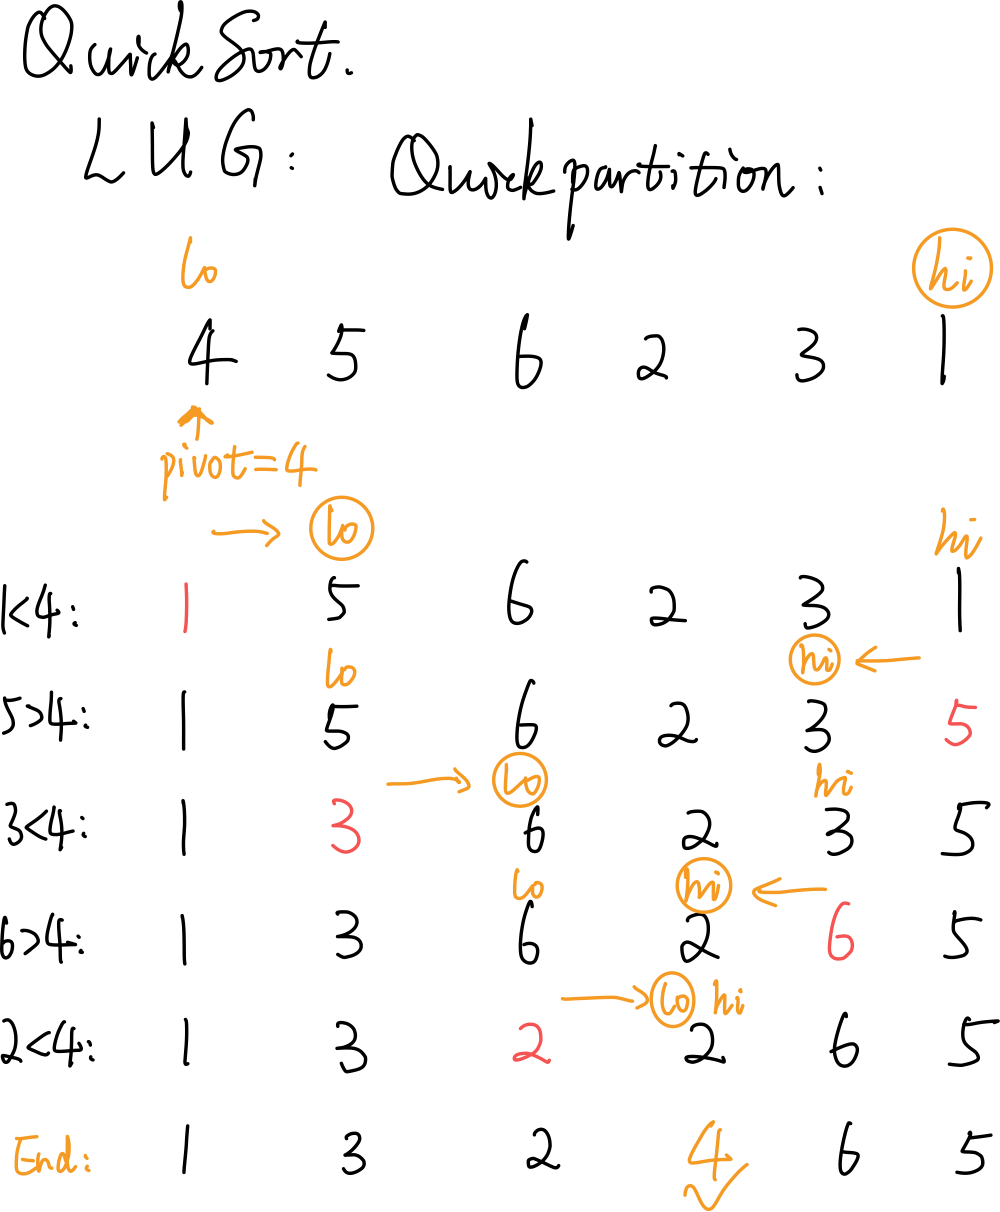 QuickSort.
LUG: Quickpartition:
lo hi
4 5 6 2 3 1
pivot=4
lo hi
1<4: 1 5 6 2 3 1
lo hi
5>4: 1 5 6 2 3 5
lo hi
3<4: 1 3 6 2 3 5
lo hi
6>4: 1 3 6 2 6 5
lo hi
2<4: 1 3 2 2 6 5
End: 1 3 2 4 6 5